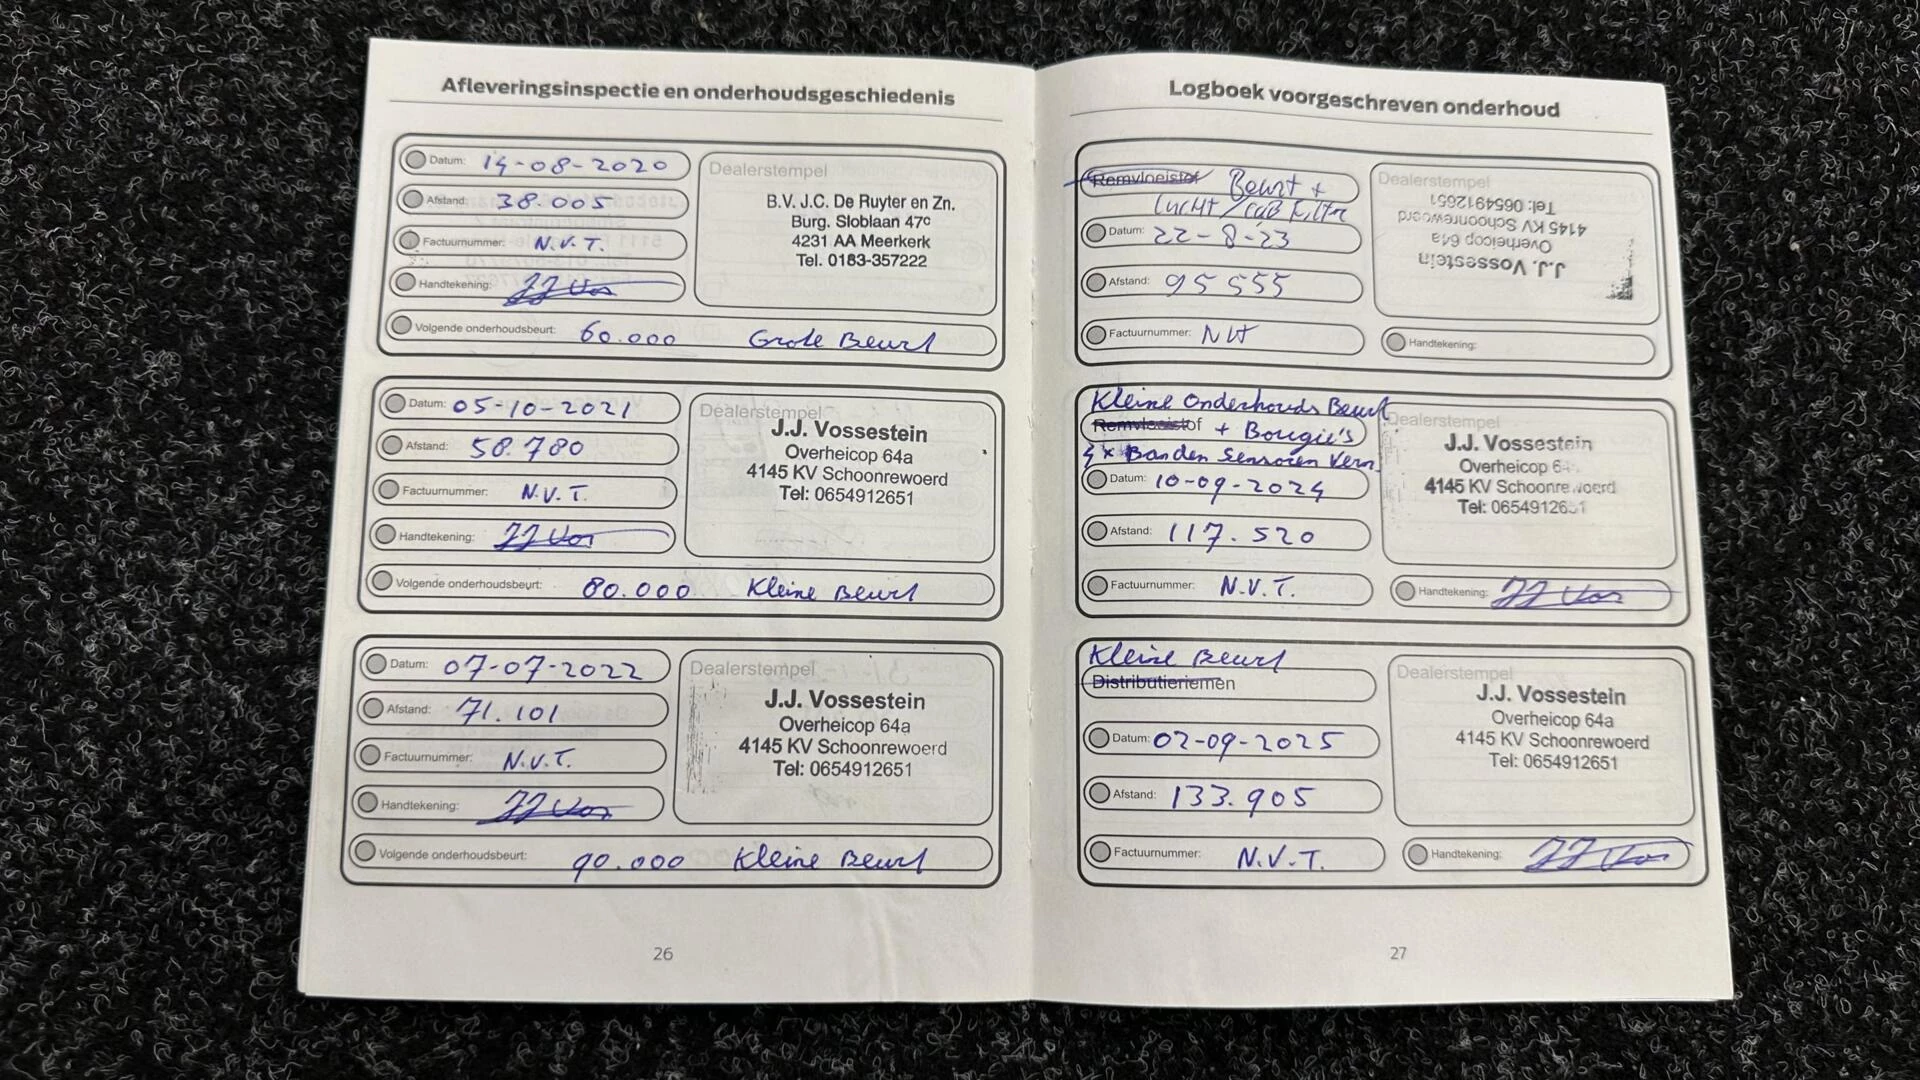 Afleveringsinspectie en onderhoudsgeschiedenis
Datum: 14-08-2020
Afstand: 38.005
Factuurnummer: N.V.T.
Handtekening: JJ Vos
Volgende onderhoudsbeurt: 60.000 Grote Beurt
Dealerstempel
B.V. J.C. De Ruyter en Zn.
Burg. Sloblaan 47c
4231 AA Meerkerk
Tel. 0183-357222
Datum: 05-10-2021
Afstand: 58.780
Factuurnummer: N.V.T.
Handtekening: JJ Vos
Volgende onderhoudsbeurt: 80.000 Kleine Beurt
Dealerstempel
J.J. Vossestein
Overheicop 64a
4145 KV Schoonrewoerd
Tel: 0654912651
Datum: 07-07-2022
Afstand: 71.101
Factuurnummer: N.V.T.
Handtekening: JJ Vos
Volgende onderhoudsbeurt: 90.000 Kleine Beurt
Dealerstempel
J.J. Vossestein
Overheicop 64a
4145 KV Schoonrewoerd
Tel: 0654912651
26
Logboek voorgeschreven onderhoud
Remvloeistof Beurt +
Lucht/cab filter
Datum: 22-8-23
Afstand: 95555
Factuurnummer: NVT
Dealerstempel
J.J. Vossestein
Overheicop 64a
4145 KV Schoonrewoerd
Tel: 0654912651
Handtekening:
Kleine Onderhouds Beurt
Remvloeistof + Bougie's
4x Banden Sensoren Vern.
Datum: 10-09-2024
Afstand: 117.520
Factuurnummer: N.V.T.
Dealerstempel
J.J. Vossestein
Overheicop 64a
4145 KV Schoonrewoerd
Tel: 0654912651
Handtekening: JJ Vos
Kleine Beurt
Distributieriemen
Datum: 02-09-2025
Afstand: 133.905
Factuurnummer: N.V.T.
Dealerstempel
J.J. Vossestein
Overheicop 64a
4145 KV Schoonrewoerd
Tel: 0654912651
Handtekening: JJ Vos
27